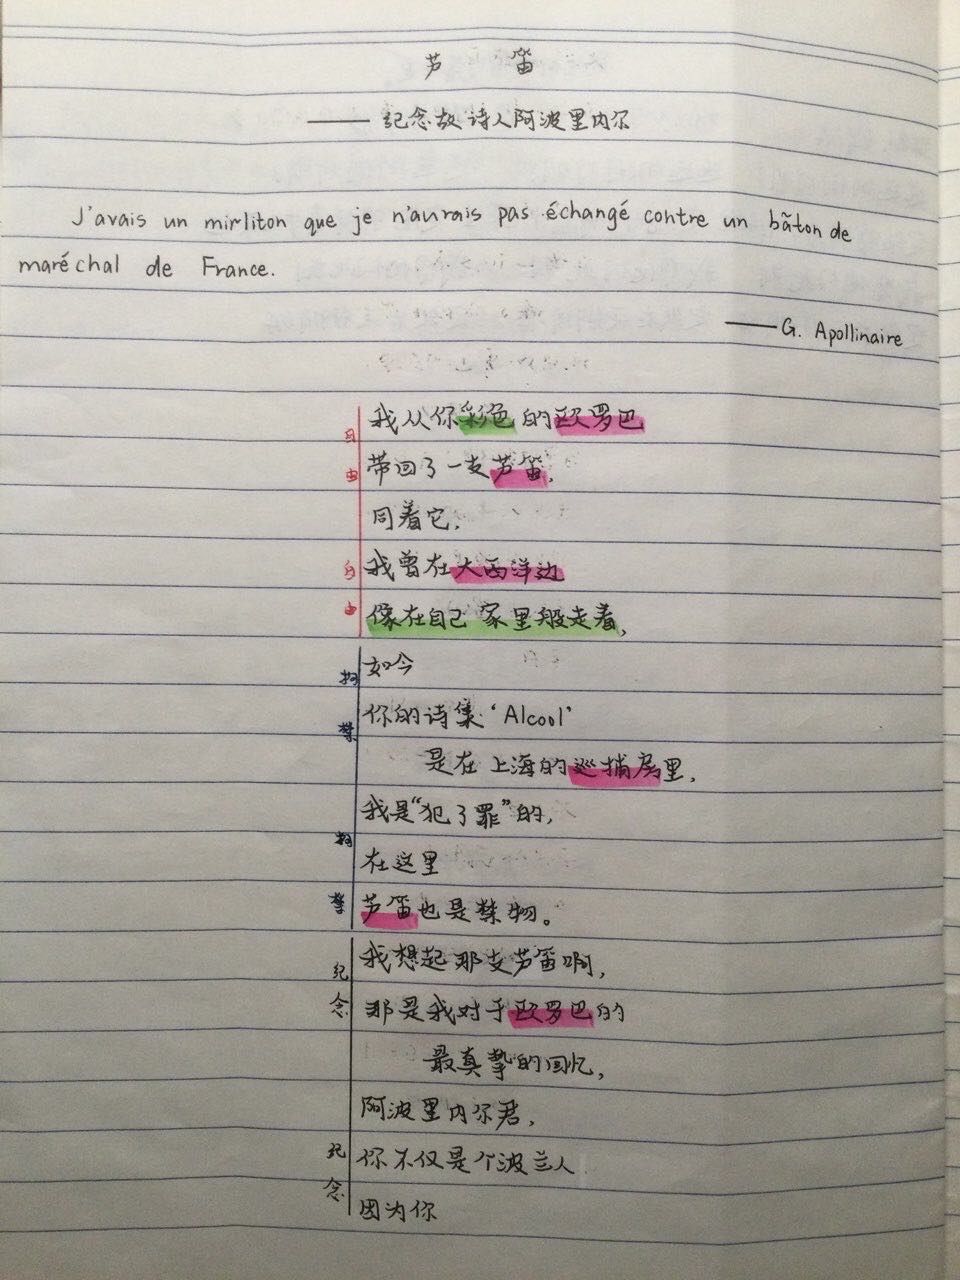 芦笛
——纪念故诗人阿波里内尔
J'avais un mirliton que je n'aurais pas échangé contre un bãton de
maréchal de France.
——G. Apollinaire
我从你彩色的欧罗巴
带回了一支芦笛,
同着它,
我曾在大西洋边
像在自己家里般走着,
如今
你的诗集‘Alcool’
是在上海的巡捕房里,
我是“犯了罪”的,
在这里
芦笛也是禁物。
我想起那支芦笛啊,
那是我对于欧罗巴的
最真挚的回忆,
阿波里内尔君,
你不仅是个波兰人
因为你
自由
自由
拘禁
拘禁
纪念
纪念